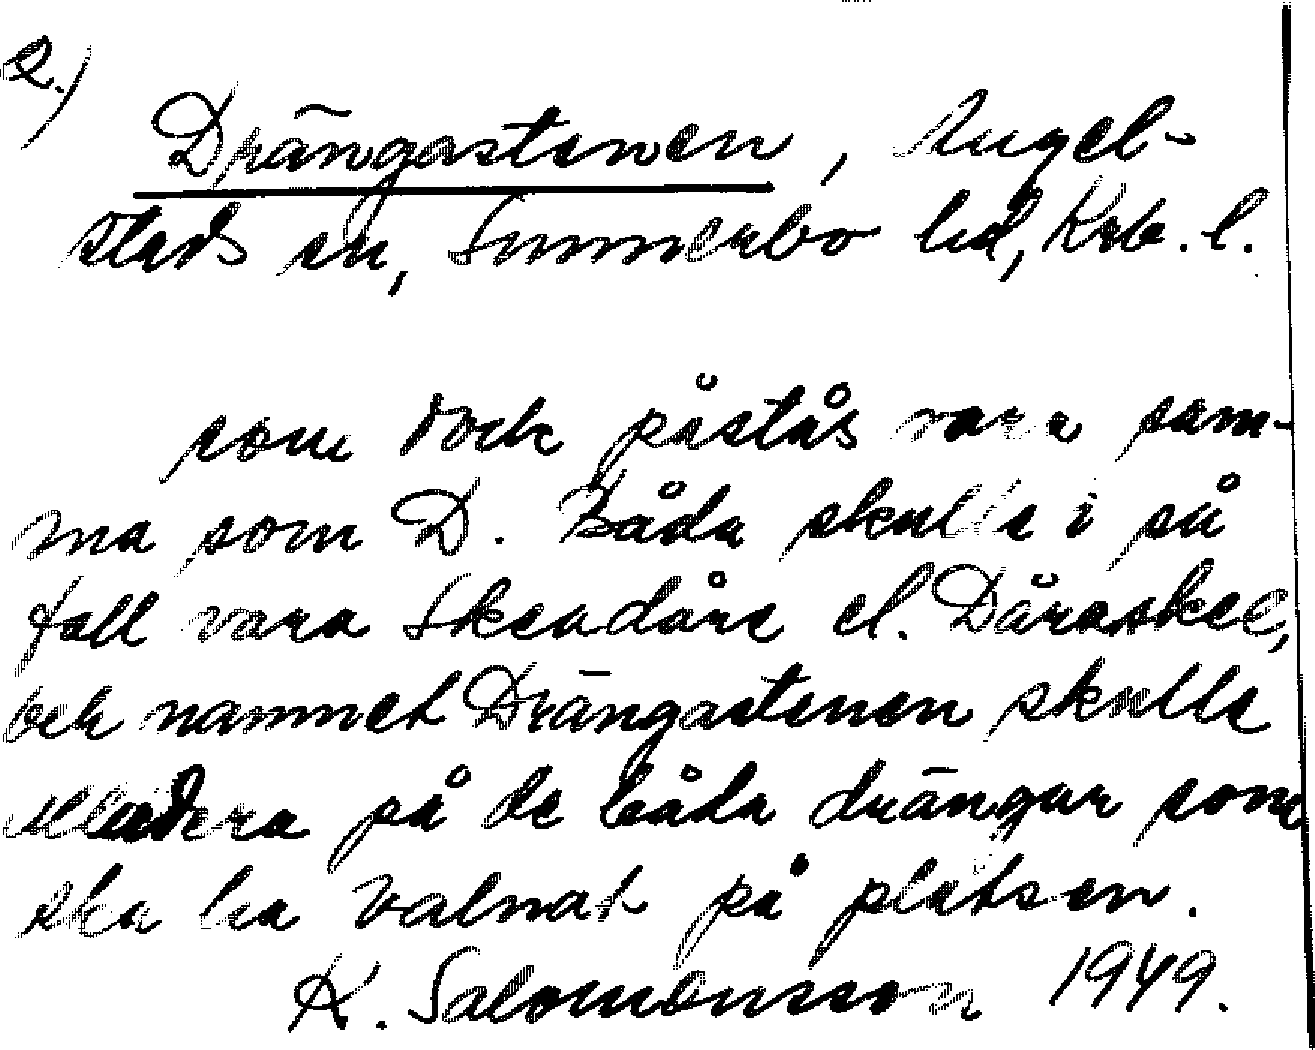 2.)
Drängastenen, Angel-
stads sn, Sunnerbo hd, Krb. l.
som dock påstås vara sam-
ma som D. Båda skulle i så
fall vara Skeadåre el. Dåraskee,
och namnet Drängastenen skulle
på de båda drängar som
ska ha valnat på platsen.
K. Salomonsson 1949.